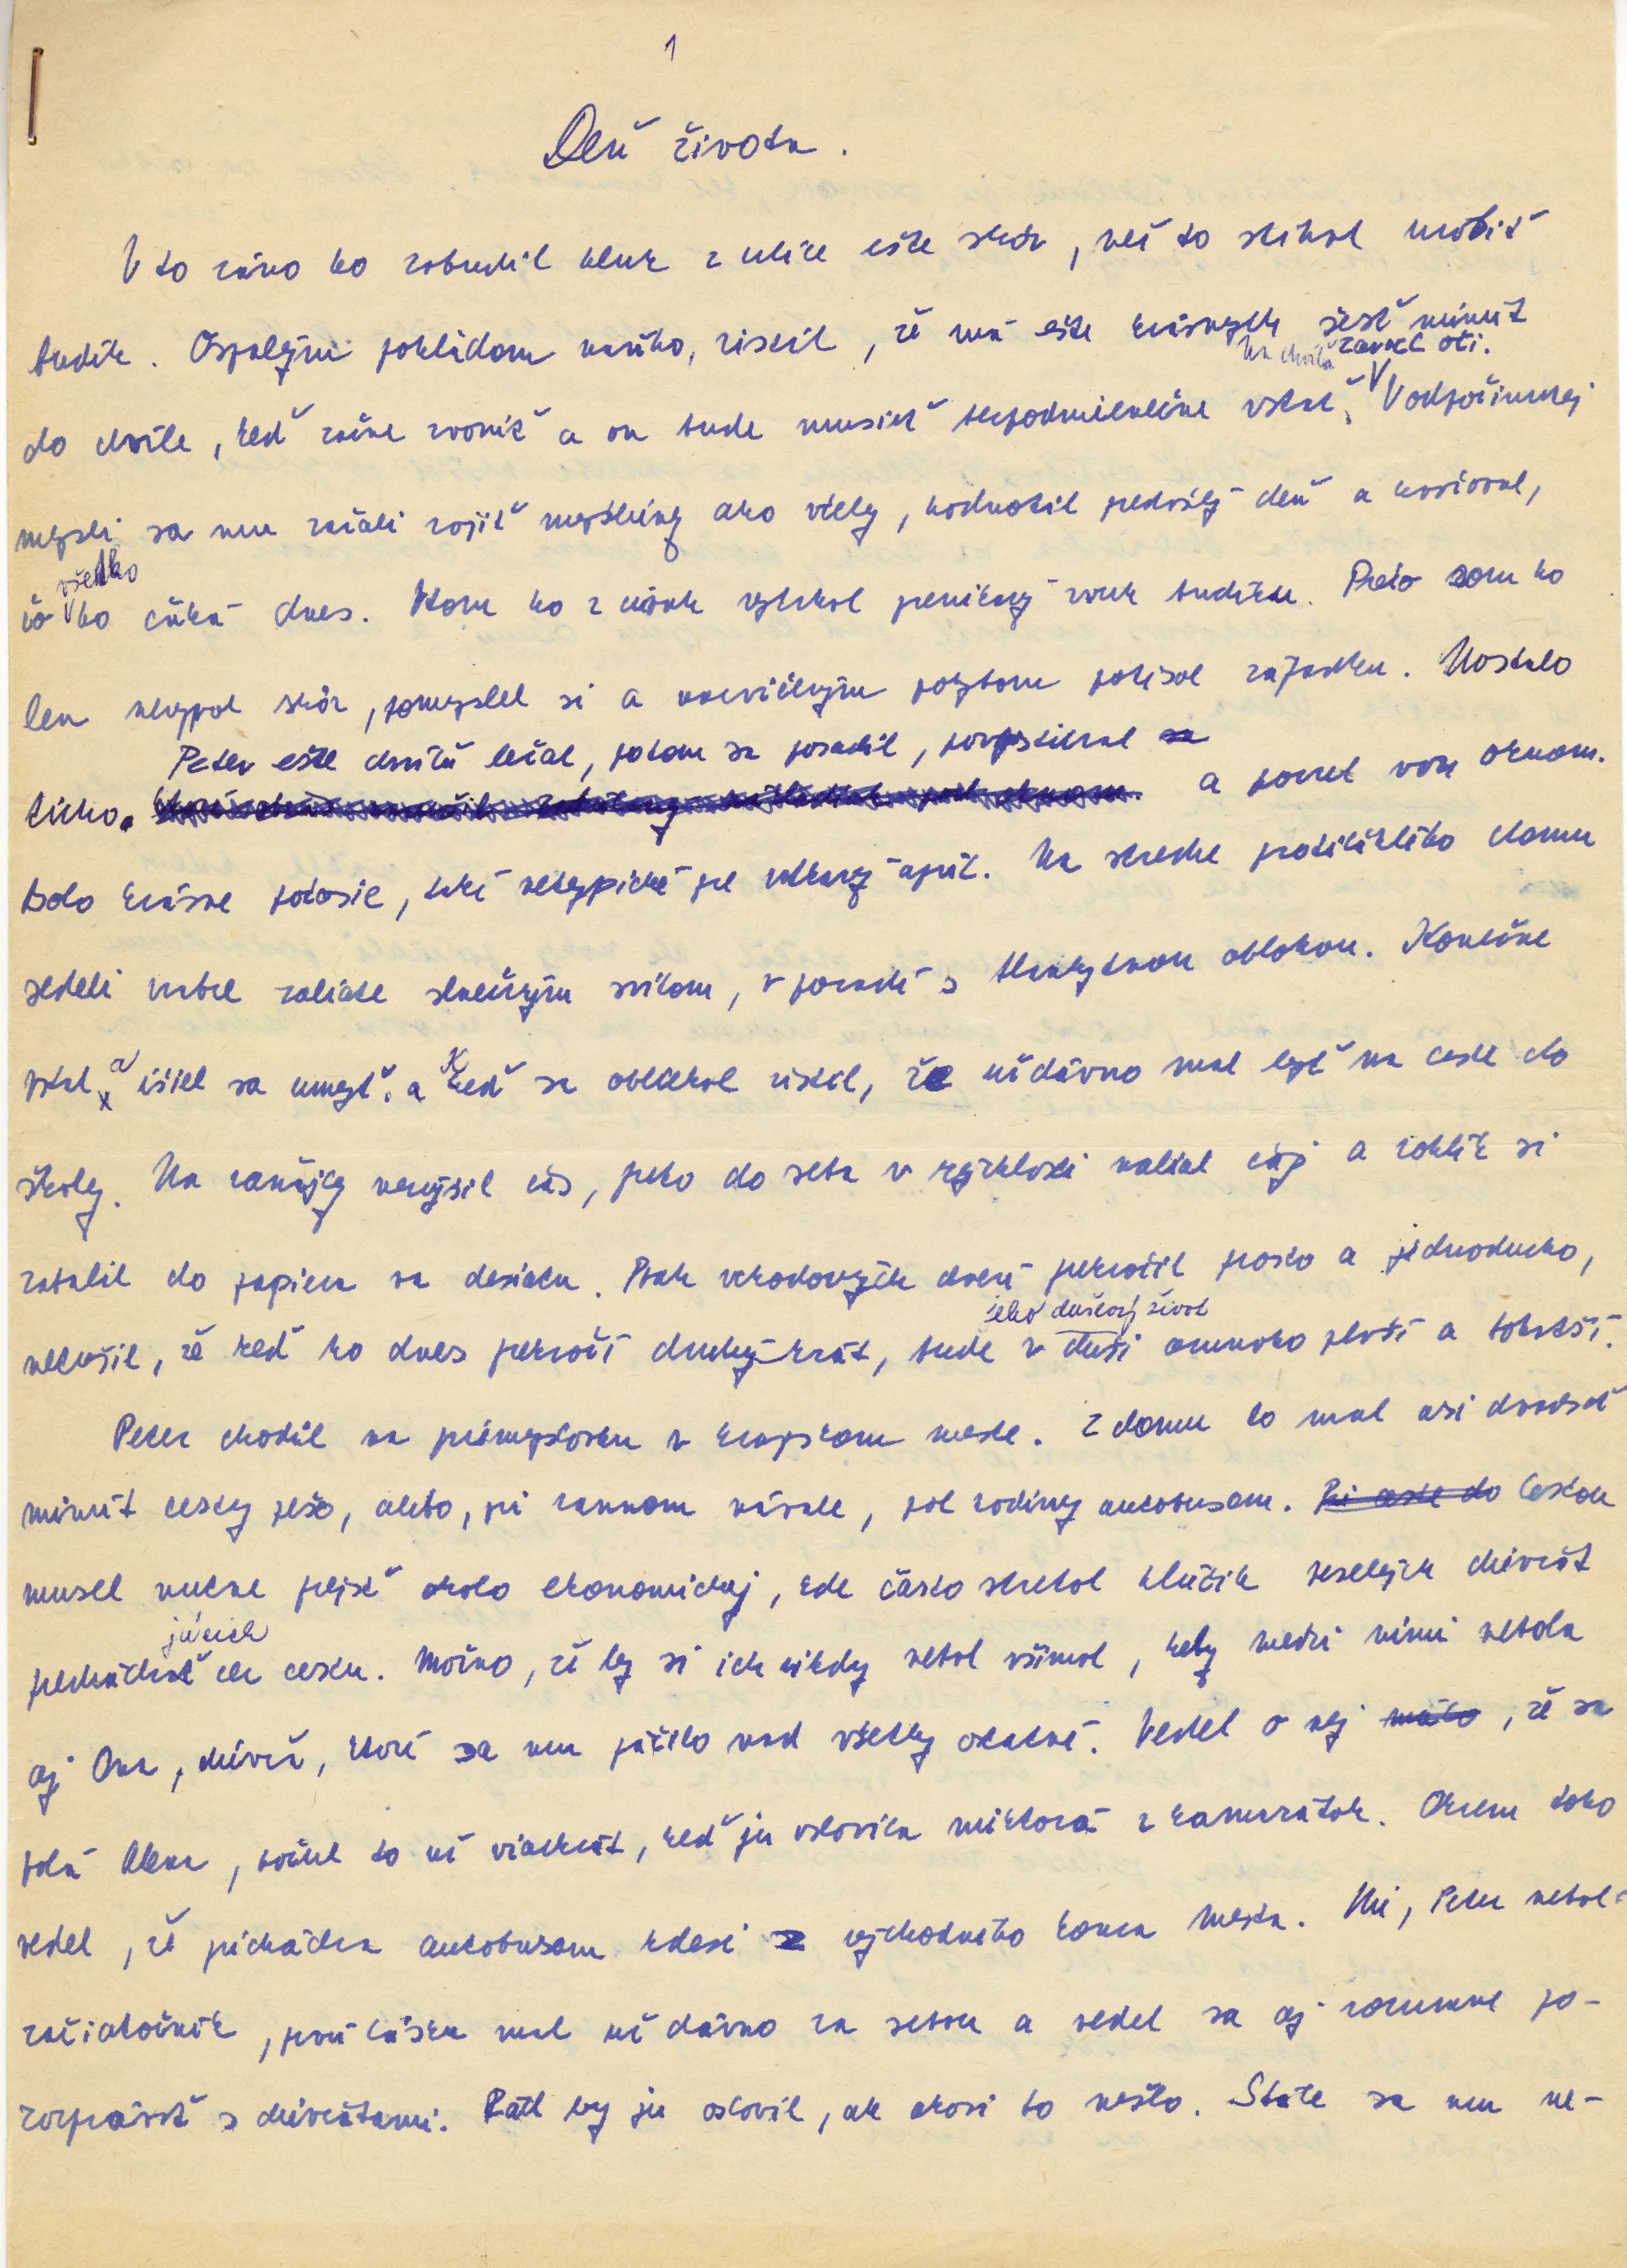 1
Deň života.
V to ráno ho zobudil hluk z ulice ešte skôr, než to stihol urobiť
budík. Ospalým pohľadom naňho, zistil, že má ešte krásnych šesť minút
na chvíľu zavrel oči.
do chvíle, keď začne zvoniť a on bude musieť bezpodmienečne vstať. V odpočinutej
mysli sa mu začali rojiť myšlienky ako včely, hodnotil predošlý deň a hovoril,
všetko
čo ho čaká dnes. Vtom ho z úvah vytrhol prenikavý zvuk budíka. Prečo som ho
len nevypol skôr, pomyslel si a nacvičeným pohybom potisol západku. Nastalo
Peter ešte chvíľu ležal, potom sa posadil, ponaťahoval sa
ticho. a pozrel von oknom.
Bolo krásne počasie, také netypické pre vrtkavý apríl. Na streche protiľahlého domu
sedeli vrabce zaliate slnečným svitom, v pozadí s blankytnou oblohou. Konečne
vstal a išiel sa umyť. a Keď sa obliekal zistil, že už dávno mal byť na ceste do
školy. Na raňajky nezvýšil čas, preto do seba v rýchlosti nalial čaj a rohlík si
zabalil do papiera na desiatu. Prah vchodových dverí prekročil prosto a jednoducho,
jeho duševný život
netušil, že keď ho dnes prekročí druhý krát, bude v duši omnoho plnší a bohatší.
Peter chodil na priemyslovku v krajskom meste. Z domu to mal asi dvadsať
minút cesty pešo, alebo, pri rannom návale, pol hodiny autobusom. Pri ceste do Cestou
musel nutne prejsť okolo ekonomickej, kde často stretol hlúčik veselých dievčat
júcich
prechádzať cez cestu. Možno, že by si ich nikdy nebol všimol, keby medzi nimi nebola
aj Ona, dievča, ktoré sa mu páčilo nad všetky ostatné. Vedel o nej málo, že sa
volá Alena, počul to už viackrát, keď ju oslovila niektorá z kamarátok. Okrem toho
vedel, že prichádza autobusom kdesi z východného konca mesta. Nie, Peter nebol
začiatočník, prvú lásku mal už dávno za sebou a vedel sa aj rozumne po-
rozprávať s dievčatami. Rád by ju oslovil, ale akosi to nešlo. Stále sa mu ne-